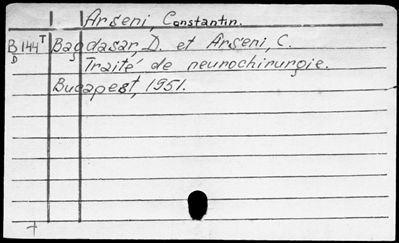 Arseni, Constantin.
B144T Bagdasar, D. et Arseni, C.
D Traité de neurochirurgie.
Bucapest, 1951.